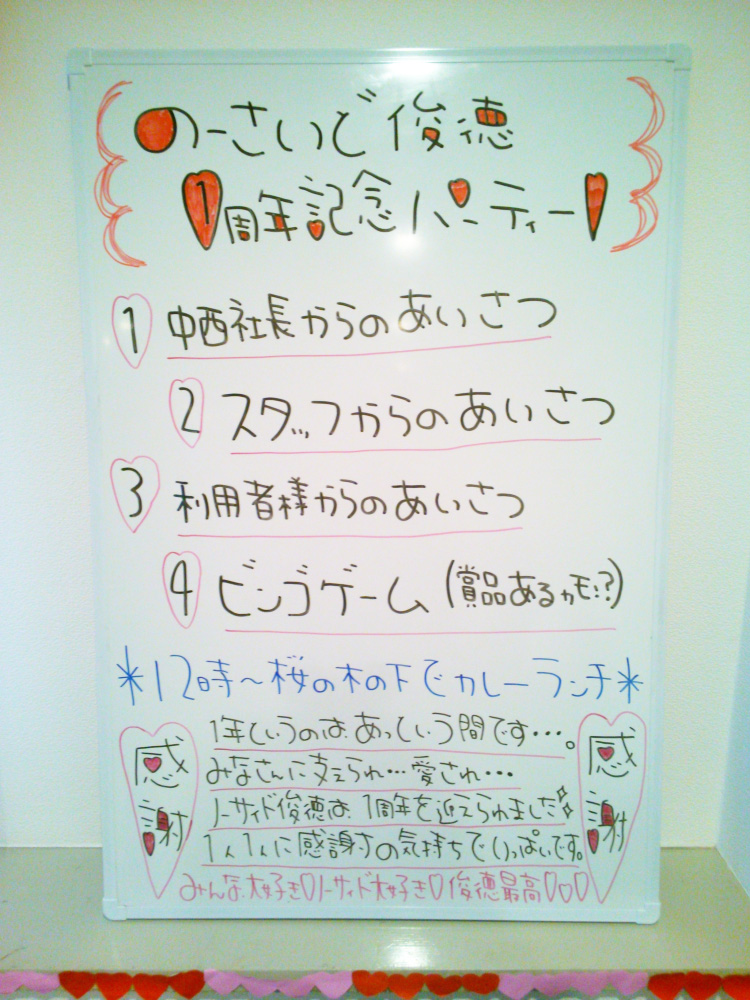 のーさいど俊徳
1周年記念パーティー!
1 中西社長からのあいさつ
2 スタッフからのあいさつ
3 利用者様からのあいさつ
4 ビンゴゲーム(賞品あるカモ!?)
*12時~桜の木の下でカレーランチ*
感謝
1年というのは、あっという間です…。
みなさんに支えられ…愛され…
ノーサイド俊徳は、1周年を迎えられました
1人1人に感謝の気持ちでいっぱいです。
みんな大好き♡ノーサイド大好き♡俊徳最高♡♡♡
感謝